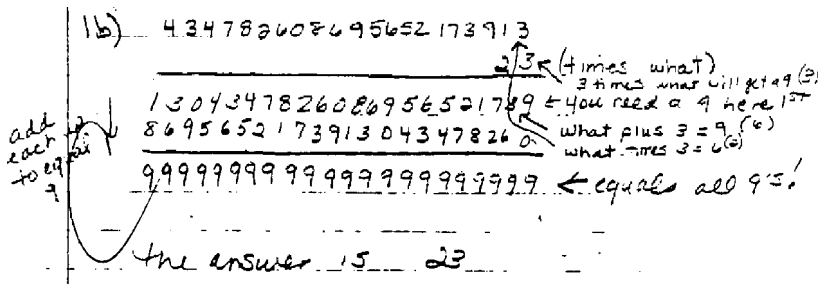 1b) 434782608695652173913
23 (times what)
3 times what will get a 9 (3)
130434782608695651739 ← you need a 9 here 1st
869565217391304347826 0 what plus 3 = 9 (6)
what times 3 = 6 (2)
add each to equal 9
999999999999999999999 ← equals all 9's!
the answer is 23